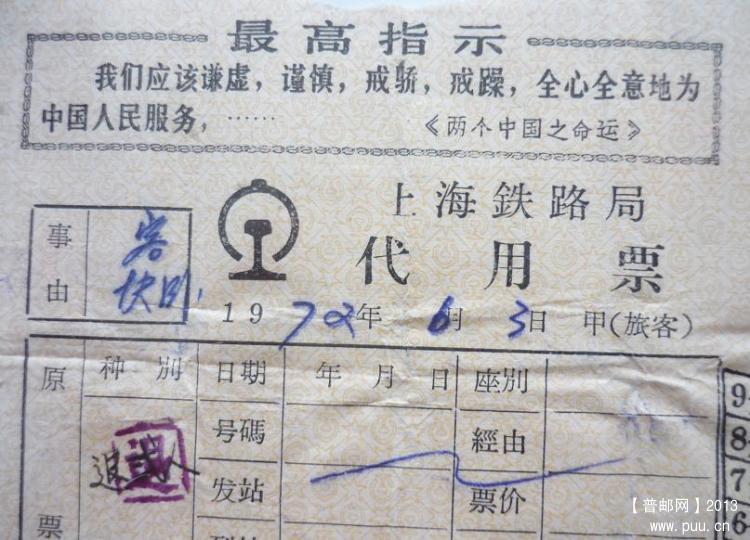 最高指示
我们应该谦虚，谨慎，戒骄，戒躁，全心全意地为
中国人民服务，……
《两个中国之命运》
上海鉄路局
代用票
事由 客快
1972年6月3日 甲（旅客）
原票 种別 日期 年月日 座別
号碼 經由
发站 票价
9
8
7
6
【普邮网】2013
www.puu.cn